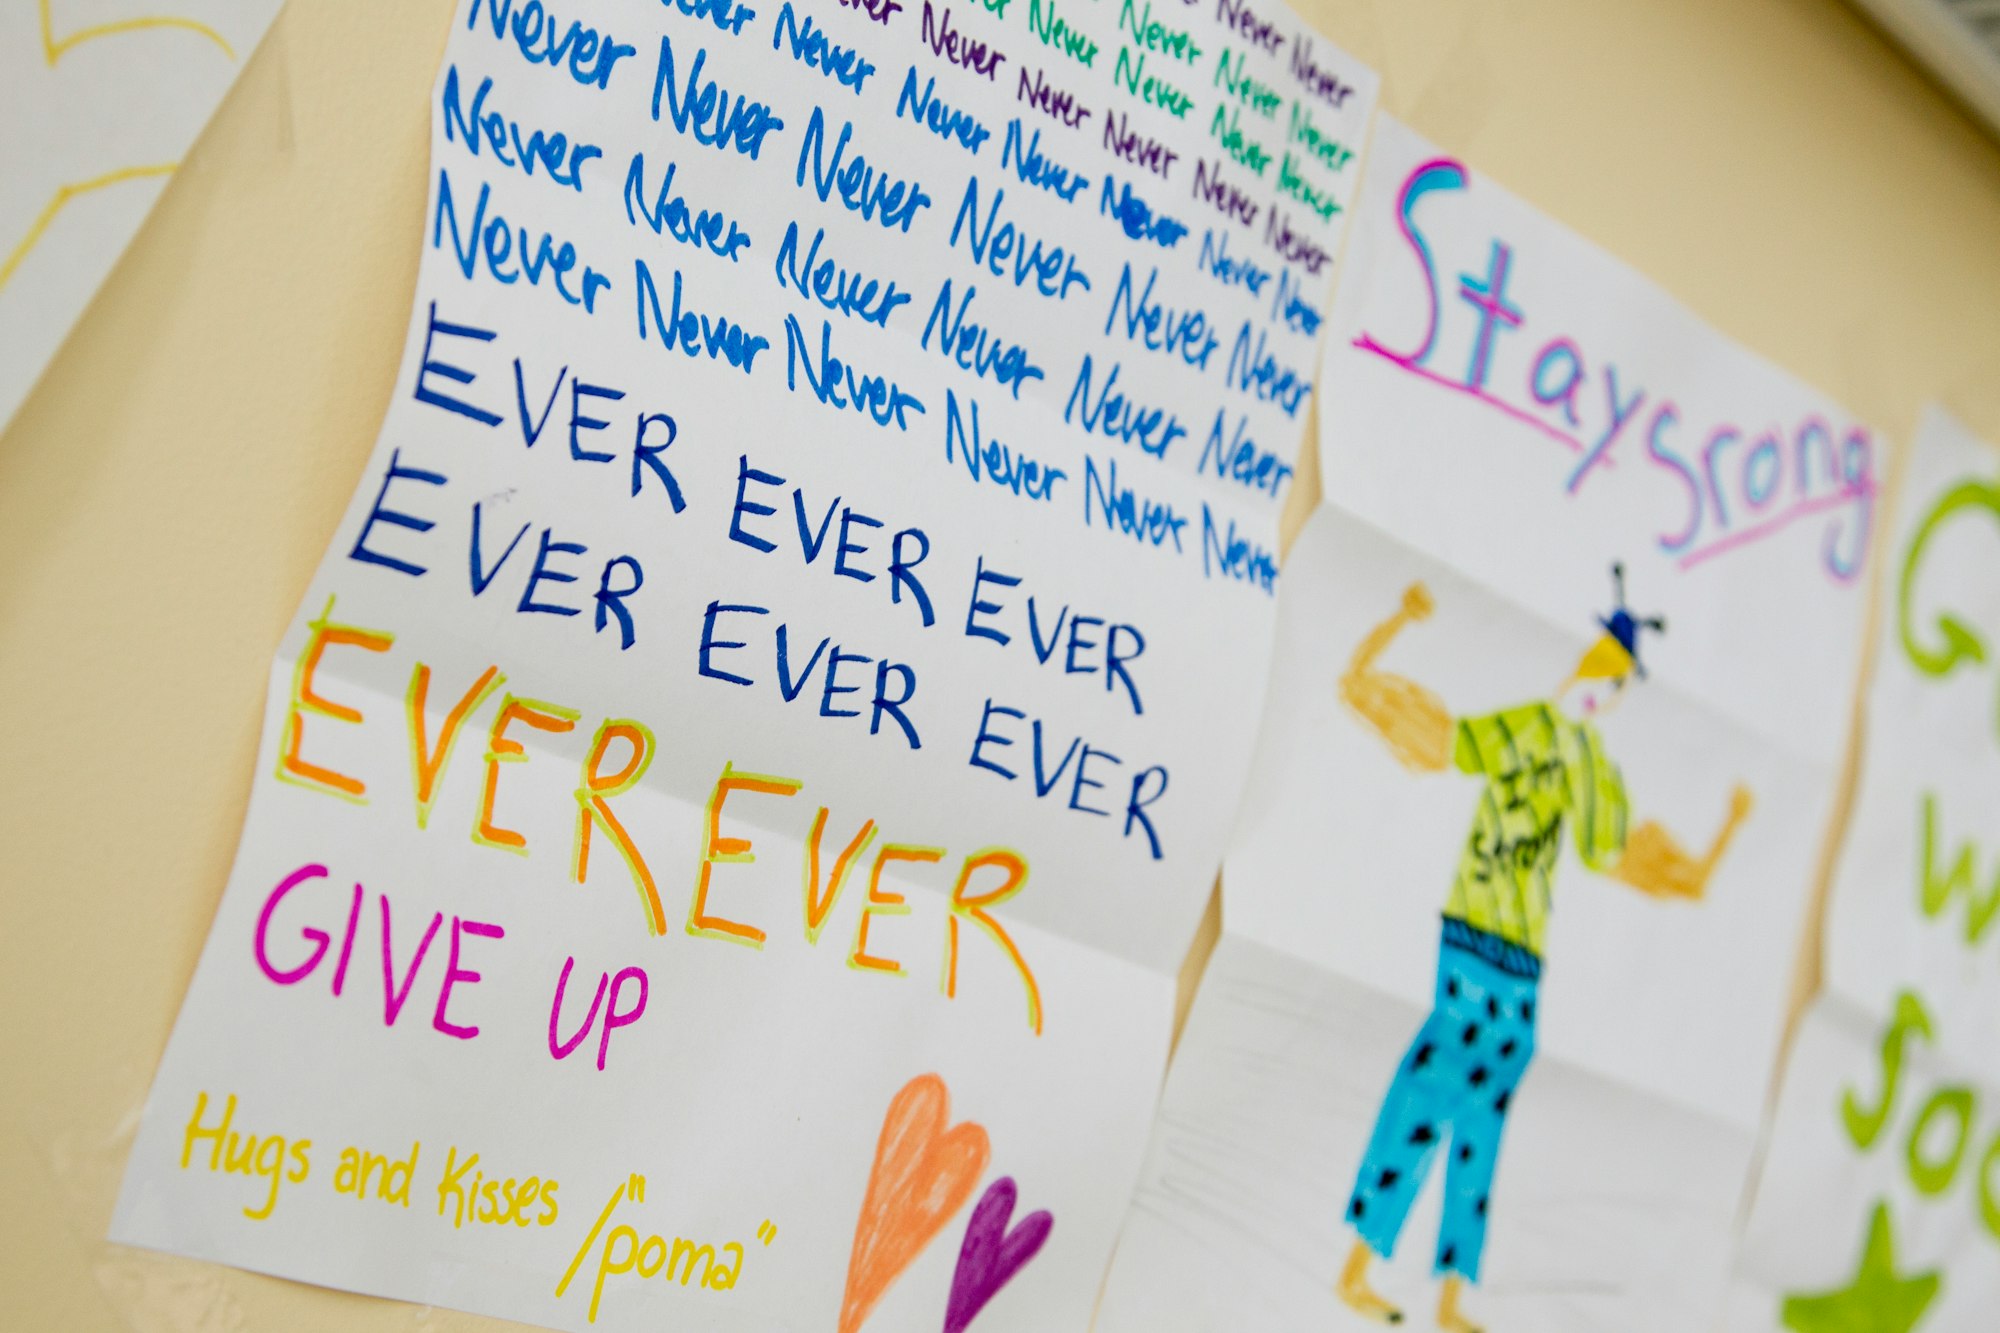 Never Never
Never Never Never
Never Never Never Never
Never Never Never Never Never
Never Never Never Never Never Never
Never Never Never Never Never Never
Never Never Never Never Never Never
Never Never Never Never Never Never
EVER EVER EVER
EVER EVER EVER
EVER EVER
GIVE UP
Hugs and Kisses /"poma"
Stay srong
I'm
strong
G
W